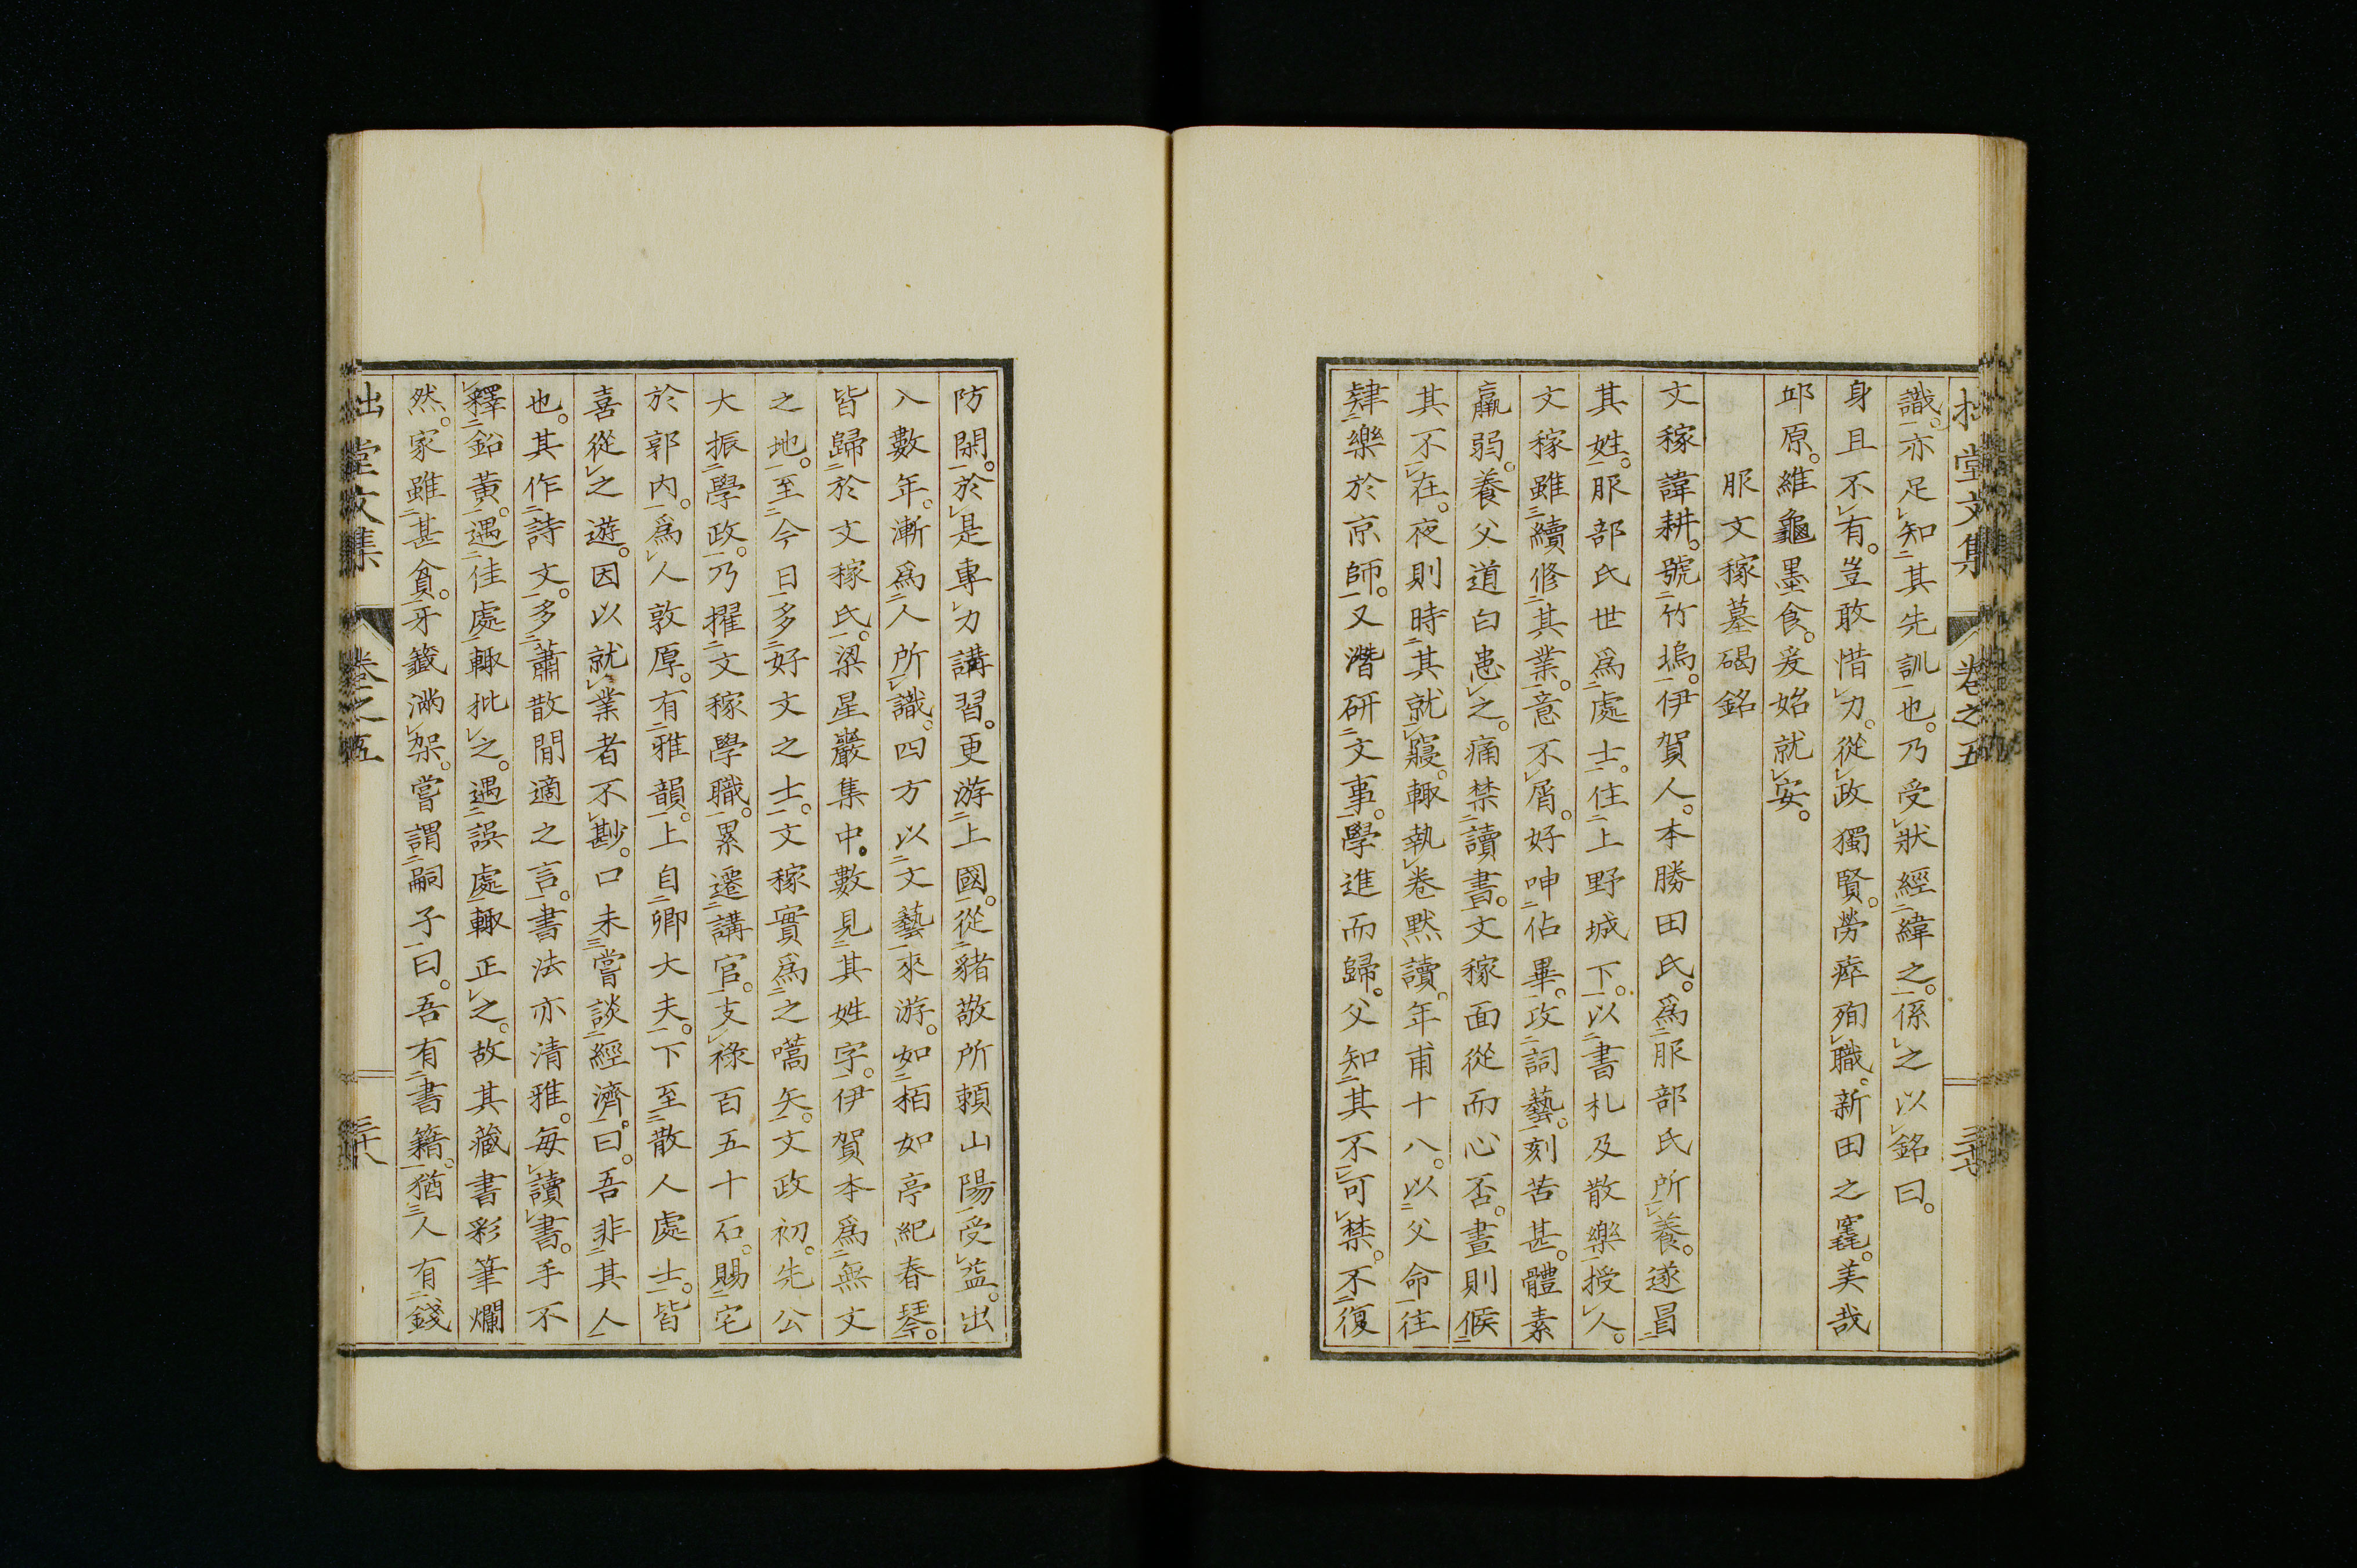 拙堂文集 卷之五 三十七
識。亦足知其先訓也。乃受狀經緯之。係之以銘曰。
身且不有。豈敢惜力。從政獨賢。勞瘁殉職。新田之竁。美哉
邱原。維龜墨食。爰始就安。
服文稼墓碣銘
文稼諱耕。號竹塢。伊賀人。本勝田氏。爲服部氏所養。遂冒
其姓。服部氏世爲處士。住上野城下。以書札及散樂授人。
文稼雖續修其業。意不屑。好呻佔畢。攻詞藝。刻苦甚。體素
羸弱。養父道白患之。痛禁讀書。文稼面從而心否。晝則候
其不在。夜則時其就寢。輙執卷默讀。年甫十八。以父命往
肄樂於京師。又潛研文事。學進而歸。父知其不可禁。不復
防閑。於是專力講習。更游上國。從豬敬所賴山陽受益。出
入數年。漸爲人所識。四方以文藝來游。如栢如亭紀春琴。
皆歸於文稼氏。梁星巖集中。數見其姓字。伊賀本爲無文
之地。至今日多好文之士。文稼實爲之嚆矢。文政初。先公
大振學政。乃擢文稼學職。累遷講官。支祿百五十石。賜宅
於郭內。爲人敦厚。有雅韻。上自卿大夫。下至散人處士。皆
喜從之遊。因以就業者不尠。口未嘗談經濟。曰。吾非其人
也。其作詩文。多蕭散閒適之言。書法亦清雅。每讀書。手不
釋鉛黃。遇佳處輙批之。遇誤處輙正之。故其藏書彩筆爛
然。家雖甚貧。牙籤滿架。嘗謂嗣子曰。吾有書籍。猶人有錢
拙堂文集 卷之五 三十八